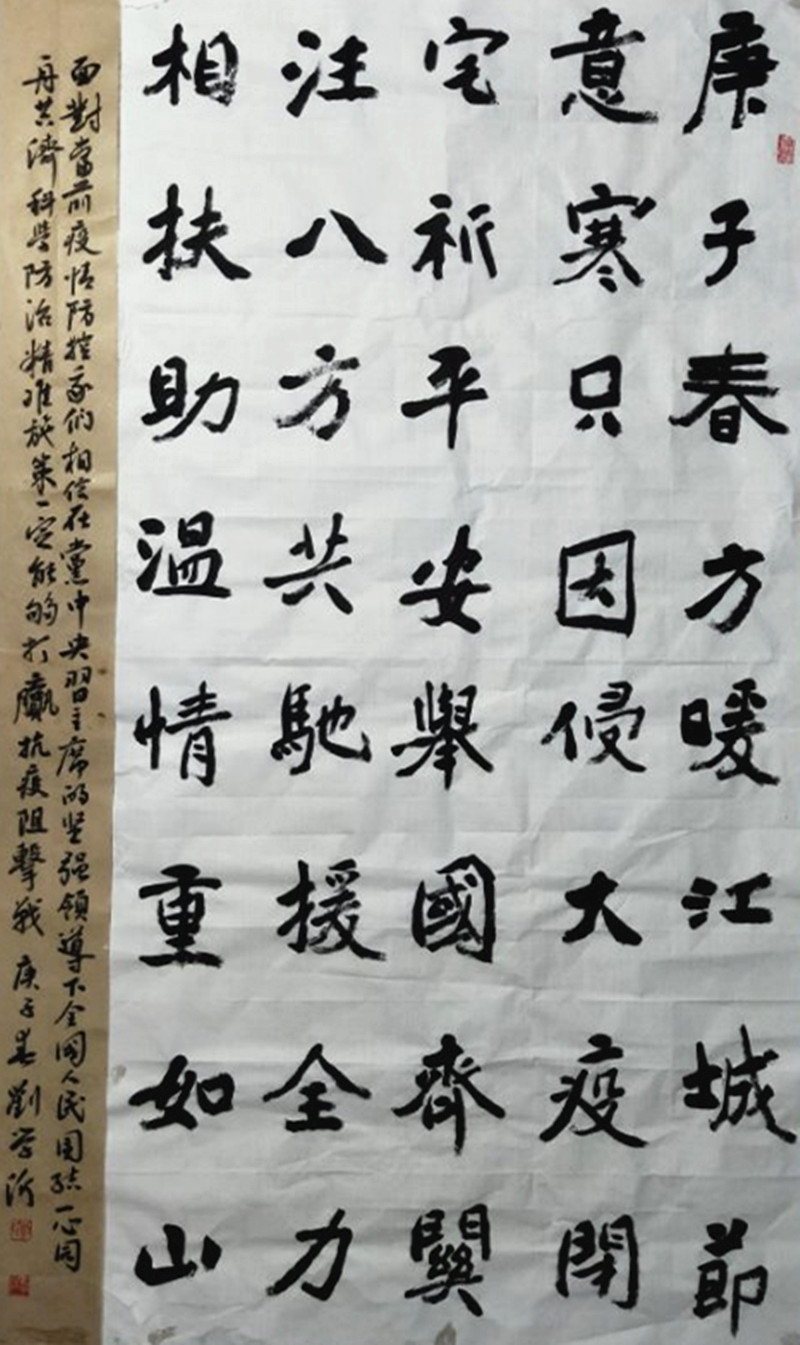 庚子春方暖江城節
意寒只因侵大疫閉
宅祈平安舉國齊關
注八方共馳援全力
相扶助溫情重如山
面對當前疫情防控我们相信在黨中央習主席的坚强領導下全國人民團结一心同
舟共濟科學防治精准施策一定能够打贏抗疫阻擊戰 庚子春劉学沂